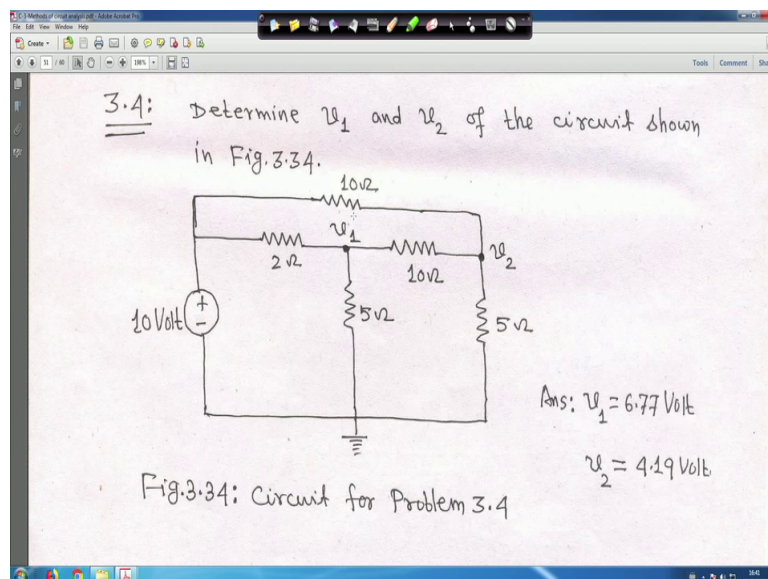 C-3-Methods of circuit analysis.pdf - Adobe Acrobat Pro
File Edit View Window Help
Create
51 / 60
198%
Tools Comment Sha
3.4: Determine v1 and v2 of the circuit shown
in Fig.3.34.
10Ω
v1
v2
2Ω
10Ω
10Volt
+
-
5Ω
5Ω
Ans: v1 = 6.77 Volt
v2 = 4.19 Volt.
Fig.3.34: Circuit for Problem 3.4
16:41